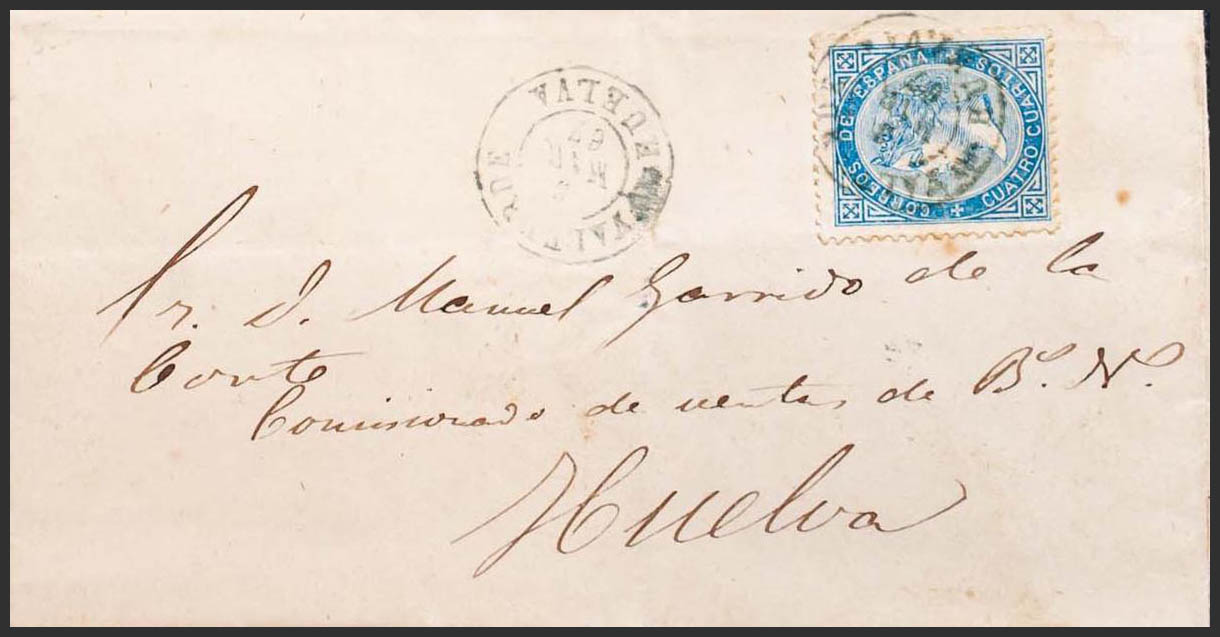 HUELVA
VALVERDE
MAR
67
CORREOS DE ESPAÑA
CUATRO CUARTOS
Sr. D. Manuel Garrido de la
Corte
Comisionado de ventas de Bs. Ns.
Huelva